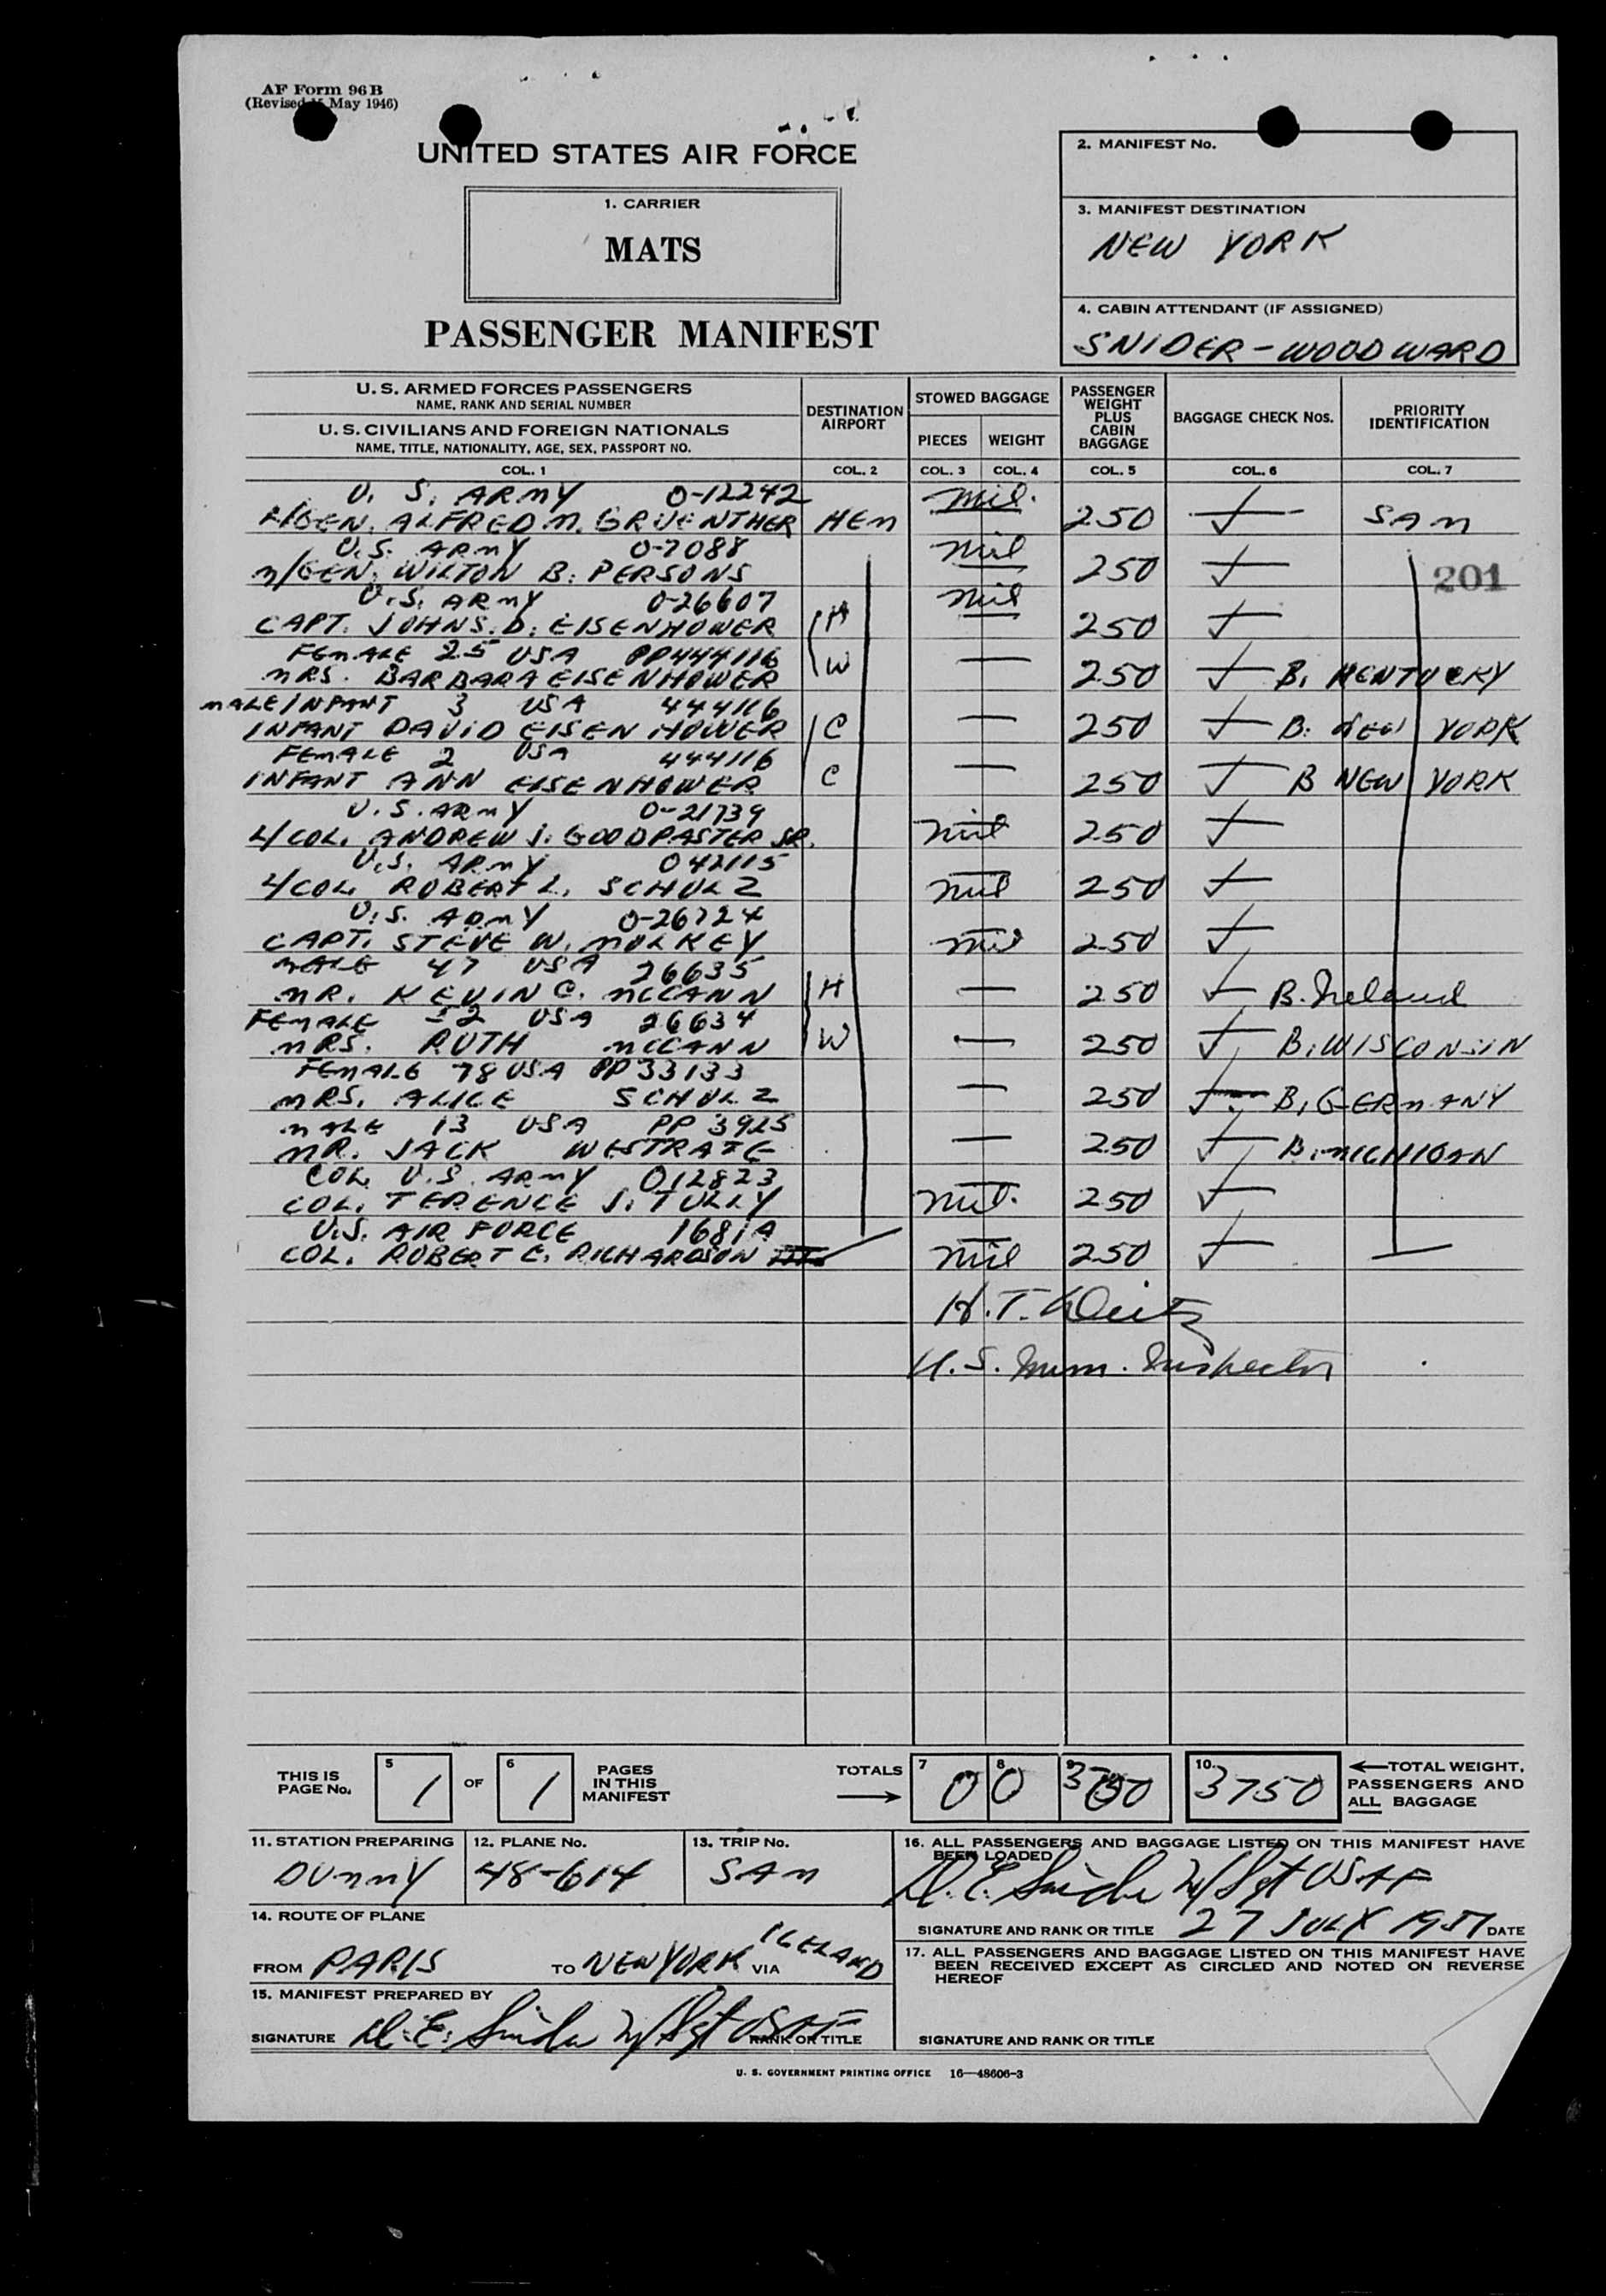 AF Form 96 B
(Revised 15 May 1946)
UNITED STATES AIR FORCE
1. CARRIER
MATS
PASSENGER MANIFEST
2. MANIFEST No.
3. MANIFEST DESTINATION
NEW YORK
4. CABIN ATTENDANT (IF ASSIGNED)
SNIDER - WOODWARD
U. S. ARMED FORCES PASSENGERS
NAME, RANK AND SERIAL NUMBER
U. S. CIVILIANS AND FOREIGN NATIONALS
NAME, TITLE, NATIONALITY, AGE, SEX, PASSPORT NO.
DESTINATION AIRPORT
STOWED BAGGAGE
PIECES WEIGHT
PASSENGER WEIGHT PLUS CABIN BAGGAGE
BAGGAGE CHECK Nos.
PRIORITY IDENTIFICATION
COL. 1 COL. 2 COL. 3 COL. 4 COL. 5 COL. 6 COL. 7
U. S. ARMY 0-12242 Mil.
GEN. ALFRED M. GRUENTHER HEM 250 SAM
U.S. ARMY 0-7088 Mil
M/GEN. WILTON B. PERSONS 250 201
U.S. ARMY 0-26607 Mil
CAPT. JOHN S. D. EISENHOWER H 250
FEMALE 25 USA PP444116
MRS. BARBARA EISENHOWER W — 250 B. KENTUCKY
MALE INFANT 3 USA 444116
INFANT DAVID EISENHOWER C — 250 B. NEW YORK
FEMALE 2 USA 444116
INFANT ANN EISENHOWER C — 250 B NEW YORK
U.S. ARMY 0-21739
L/COL. ANDREW J. GOODPASTER JR. Mil 250
U.S. ARMY 042115
L/COL ROBERT L. SCHULZ Mil 250
U.S. ARMY 0-26724
CAPT. STEVE W. MULKEY Mil 250
MALE 47 USA 26635
MR. KEVIN C. MCCANN H — 250 B. Ireland
FEMALE 52 USA 26634
MRS. RUTH MCCANN W — 250 B. WISCONSIN
FEMALE 78 USA PP 33133
MRS. ALICE SCHULZ — 250 B. GERMANY
MALE 13 USA PP 3925
MR. JACK WESTRATE — 250 B. MICHIGAN
COL U.S. ARMY 012823
COL. TERENCE J. TULLY Mil. 250
U.S. AIR FORCE 1681A
COL. ROBERT C. RICHARDSON III Mil 250
H. T. Deitz
U.S. Imm. Inspector
THIS IS PAGE No. 5 1 OF 6 1 PAGES IN THIS MANIFEST
TOTALS 7 0 8 0 9 3750 10. 3750
TOTAL WEIGHT, PASSENGERS AND ALL BAGGAGE
11. STATION PREPARING
DUMMY
12. PLANE No.
48-614
13. TRIP No.
SAM
16. ALL PASSENGERS AND BAGGAGE LISTED ON THIS MANIFEST HAVE
BEEN LOADED
D. E. Snider M/Sgt USAF
SIGNATURE AND RANK OR TITLE 27 JULY 1951 DATE
14. ROUTE OF PLANE
FROM PARIS TO NEW YORK VIA ICELAND
17. ALL PASSENGERS AND BAGGAGE LISTED ON THIS MANIFEST HAVE
BEEN RECEIVED EXCEPT AS CIRCLED AND NOTED ON REVERSE
HEREOF
15. MANIFEST PREPARED BY
SIGNATURE D. E. Snider M/Sgt USAF RANK OR TITLE
SIGNATURE AND RANK OR TITLE
U. S. GOVERNMENT PRINTING OFFICE 16—48606-3